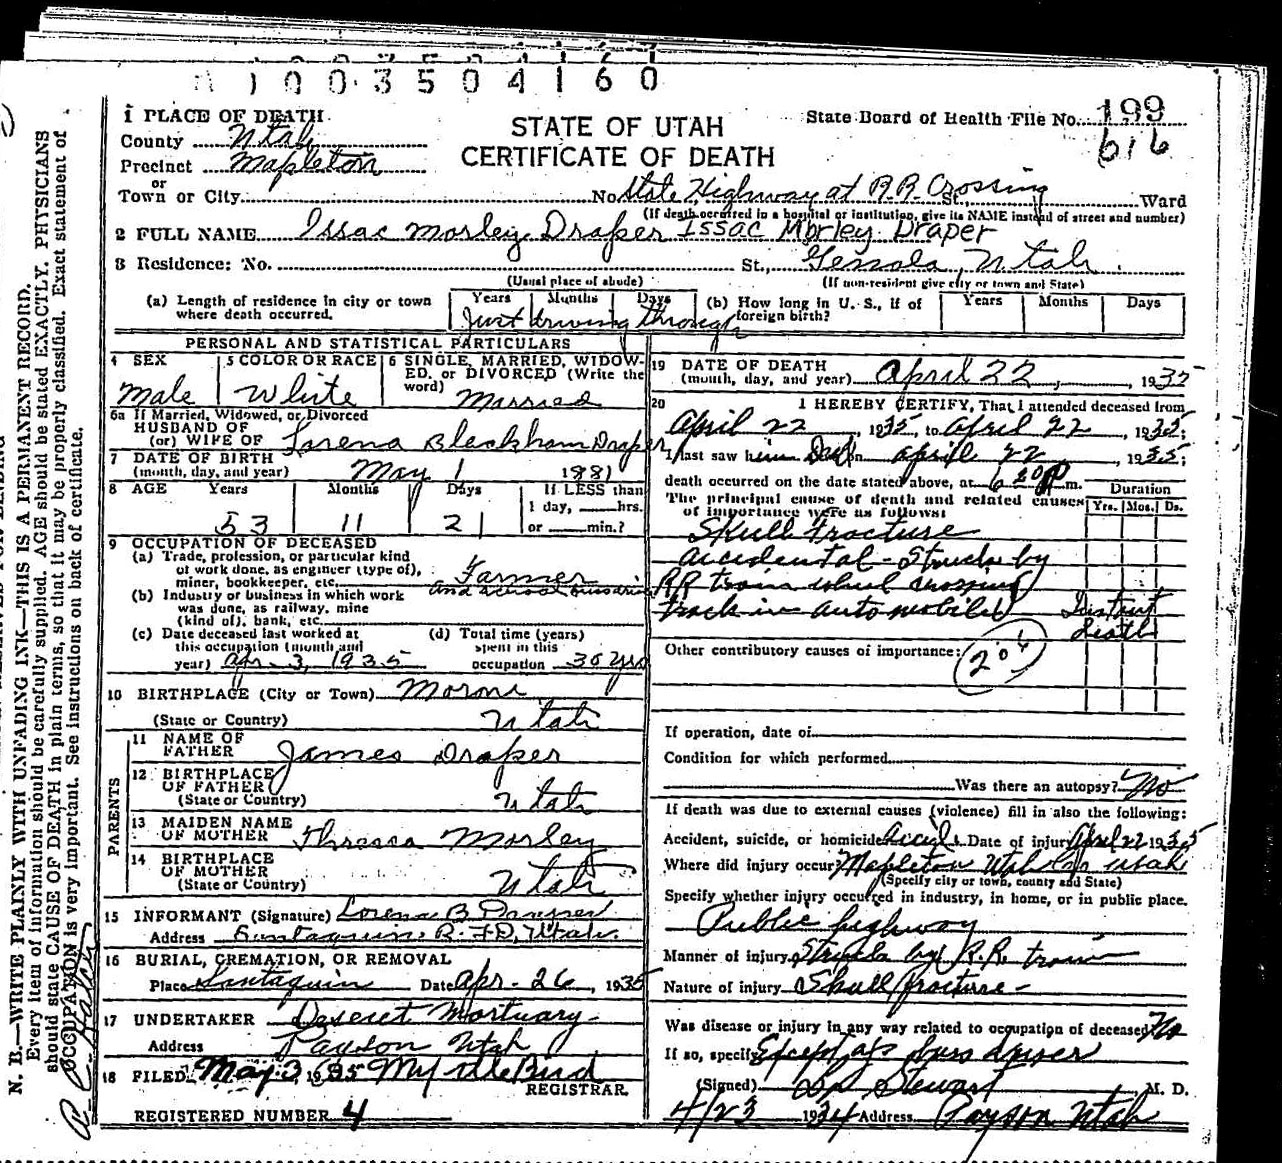 1003504160
1 PLACE OF DEATH
County Utah
Precinct Mapleton
or
Town or City
STATE OF UTAH
CERTIFICATE OF DEATH
State Board of Health File No. 199
616
No. State Highway at R.R. Crossing St., Ward
(If death occurred in a hospital or institution, give its NAME instead of street and number)
2 FULL NAME Issac Morley Draper Issac Morley Draper
3 Residence: No. St., Genola, Utah.
(Usual place of abode) (If non-resident give city or town and State)
(a) Length of residence in city or town where death occurred. Years Months Days
Just driving through
(b) How long in U. S., if of foreign birth? Years Months Days
PERSONAL AND STATISTICAL PARTICULARS
4 SEX Male
5 COLOR OR RACE White
6 SINGLE, MARRIED, WIDOWED, or DIVORCED (Write the word) Married
6a If Married, Widowed, or Divorced
HUSBAND OF
(or) WIFE OF Lorena Blackham Draper
7 DATE OF BIRTH
(month, day, and year) May 1 1881
8 AGE Years Months Days If LESS than
1 day, hrs.
53 11 21 or min.?
9 OCCUPATION OF DECEASED
(a) Trade, profession, or particular kind
of work done, as engineer (type of),
miner, bookkeeper, etc. Farmer
and school bus
(b) Industry or business in which work
was done, as railway, mine
(kind of), bank, etc.
(c) Date deceased last worked at
this occupation (month and
year) Apr. 3, 1935
(d) Total time (years)
spent in this
occupation 30 yrs
10 BIRTHPLACE (City or Town) Moroni
(State or Country) Utah
PARENTS
11 NAME OF
FATHER James Draper
12 BIRTHPLACE
OF FATHER
(State or Country) Utah
13 MAIDEN NAME
OF MOTHER Thressa Morley
14 BIRTHPLACE
OF MOTHER
(State or Country) Utah
15 INFORMANT (Signature) Lorena B Draper
Address Santaquin R.F.D, Utah.
16 BURIAL, CREMATION, OR REMOVAL
Place Santaquin Date Apr - 26, 1935
17 UNDERTAKER Deseret Mortuary
Address Payson Utah
18 FILED May 3 1935 Myrtle Bird
REGISTRAR.
REGISTERED NUMBER 4
19 DATE OF DEATH
(month, day, and year) April 22, 1935
20 I HEREBY CERTIFY, That I attended deceased from
April 22, 1935, to April 22, 1935;
I last saw him Dead on April 22, 1935;
death occurred on the date stated above, at 6 20 p m.
The principal cause of death and related causes
of importance were as follows:
Duration
Yrs. Mos. Ds.
Skull fracture
accidental - Struck by
RR train while crossing
track in automobile Instant
death
Other contributory causes of importance:
If operation, date of
Condition for which performed
Was there an autopsy? No
If death was due to external causes (violence) fill in also the following:
Accident, suicide, or homicide Accid. Date of injury April 22 1935
Where did injury occur? Mapleton Utah Co Utah
(Specify city or town, county and State)
Specify whether injury occurred in industry, in home, or in public place.
Public highway
Manner of injury Struck by R.R. train
Nature of injury Skull fracture -
Was disease or injury in any way related to occupation of deceased? No
If so, specify Except as bus driver
(Signed) Stewart M. D.
4/23 1934 Address Payson Utah
N. B.—WRITE PLAINLY WITH UNFADING INK—THIS IS A PERMANENT RECORD.
Every item of information should be carefully supplied. AGE should be stated EXACTLY. PHYSICIANS
should state CAUSE OF DEATH in plain terms, so that it may be properly classified. Exact statement of
OCCUPATION is very important. See instructions on back of certificate.